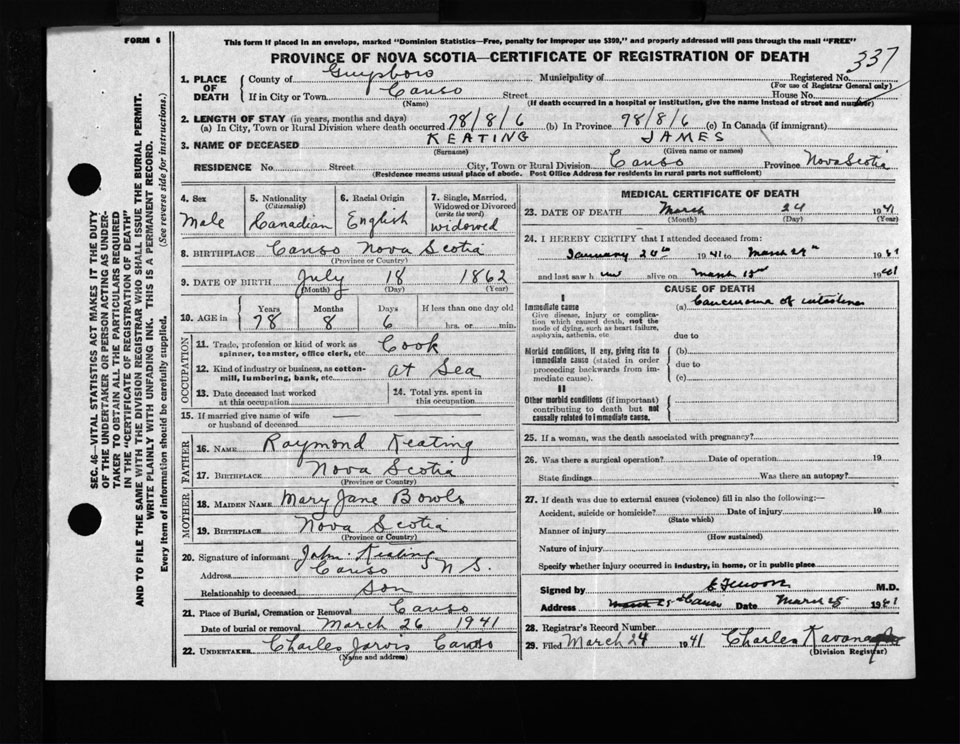 FORM 6
This form if placed in an envelope, marked "Dominion Statistics—Free, penalty for improper use $300," and properly addressed will pass through the mail "FREE"
PROVINCE OF NOVA SCOTIA—CERTIFICATE OF REGISTRATION OF DEATH
337
1. PLACE OF DEATH
County of Guysboro Municipality of Registered No.
(For use of Registrar General only)
If in City or Town Canso Street House No.
(Name) (If death occurred in a hospital or institution, give the name instead of street and number)
2. LENGTH OF STAY (in years, months and days)
(a) In City, Town or Rural Division where death occurred 78/8/6 (b) In Province 78/8/6 (c) In Canada (if immigrant)
3. NAME OF DECEASED KEATING JAMES
(Surname) (Given name or names)
RESIDENCE No. Street City, Town or Rural Division Canso Province Nova Scotia
(Residence means usual place of abode. Post Office Address for residents in rural parts not sufficient)
4. Sex Male
5. Nationality (Citizenship) Canadian
6. Racial Origin English
7. Single, Married, Widowed or Divorced (write the word) widowed
8. BIRTHPLACE Canso Nova Scotia
(Province or Country)
9. DATE OF BIRTH July 18 1862
(Month) (Day) (Year)
10. AGE in Years Months Days If less than one day old
78 8 6 hrs. or min.
OCCUPATION
11. Trade, profession or kind of work as spinner, teamster, office clerk, etc. Cook
12. Kind of industry or business, as cotton-mill, lumbering, bank, etc. at Sea
13. Date deceased last worked at this occupation
14. Total yrs. spent in this occupation
15. If married give name of wife or husband of deceased
FATHER
16. NAME Raymond Keating
17. BIRTHPLACE Nova Scotia
(Province or Country)
MOTHER
18. MAIDEN NAME Mary Jane Bowls
19. BIRTHPLACE Nova Scotia
(Province or Country)
20. Signature of informant John Keating
Address Canso N S.
Relationship to deceased Son
21. Place of Burial, Cremation or Removal Canso
Date of burial or removal March 26 1941
22. UNDERTAKER Charles Jarvis Canso
(Name and address)
MEDICAL CERTIFICATE OF DEATH
23. DATE OF DEATH March 24 1941
(Month) (Day) (Year)
24. I HEREBY CERTIFY that I attended deceased from:
January 24th 1941 to March 19
and last saw h alive on March 19
CAUSE OF DEATH
I
Immediate cause
Give disease, injury or complication which caused death, not the mode of dying, such as heart failure, asphyxia, asthenia, etc
(a) Carcinoma of intestines
due to
Morbid conditions, if any, giving rise to immediate cause (stated in order proceeding backwards from immediate cause).
(b)
due to
(c)
II
Other morbid conditions (if important) contributing to death but not causally related to immediate cause.
25. If a woman, was the death associated with pregnancy?
26. Was there a surgical operation? Date of operation 19
State findings Was there an autopsy?
27. If death was due to external causes (violence) fill in also the following:—
Accident, suicide or homicide? Date of injury 19
(State which)
Manner of injury
(How sustained)
Nature of injury
Specify whether injury occurred in industry, in home, or in public place
Signed by M.D.
Address Canso Date March 25 1941
28. Registrar's Record Number
29. Filed March 24 1941 Charles Kavanagh
(Division Registrar)
SEC. 46—VITAL STATISTICS ACT MAKES IT THE DUTY
OF THE UNDERTAKER OR PERSON ACTING AS UNDERTAKER
TO OBTAIN ALL THE PARTICULARS REQUIRED
IN THE "CERTIFICATE OF REGISTRATION OF DEATH"
AND TO FILE THE SAME WITH THE DIVISION REGISTRAR WHO SHALL ISSUE THE BURIAL PERMIT.
WRITE PLAINLY WITH UNFADING INK. THIS IS A PERMANENT RECORD.
Every item of information should be carefully supplied. (See reverse side for instructions.)